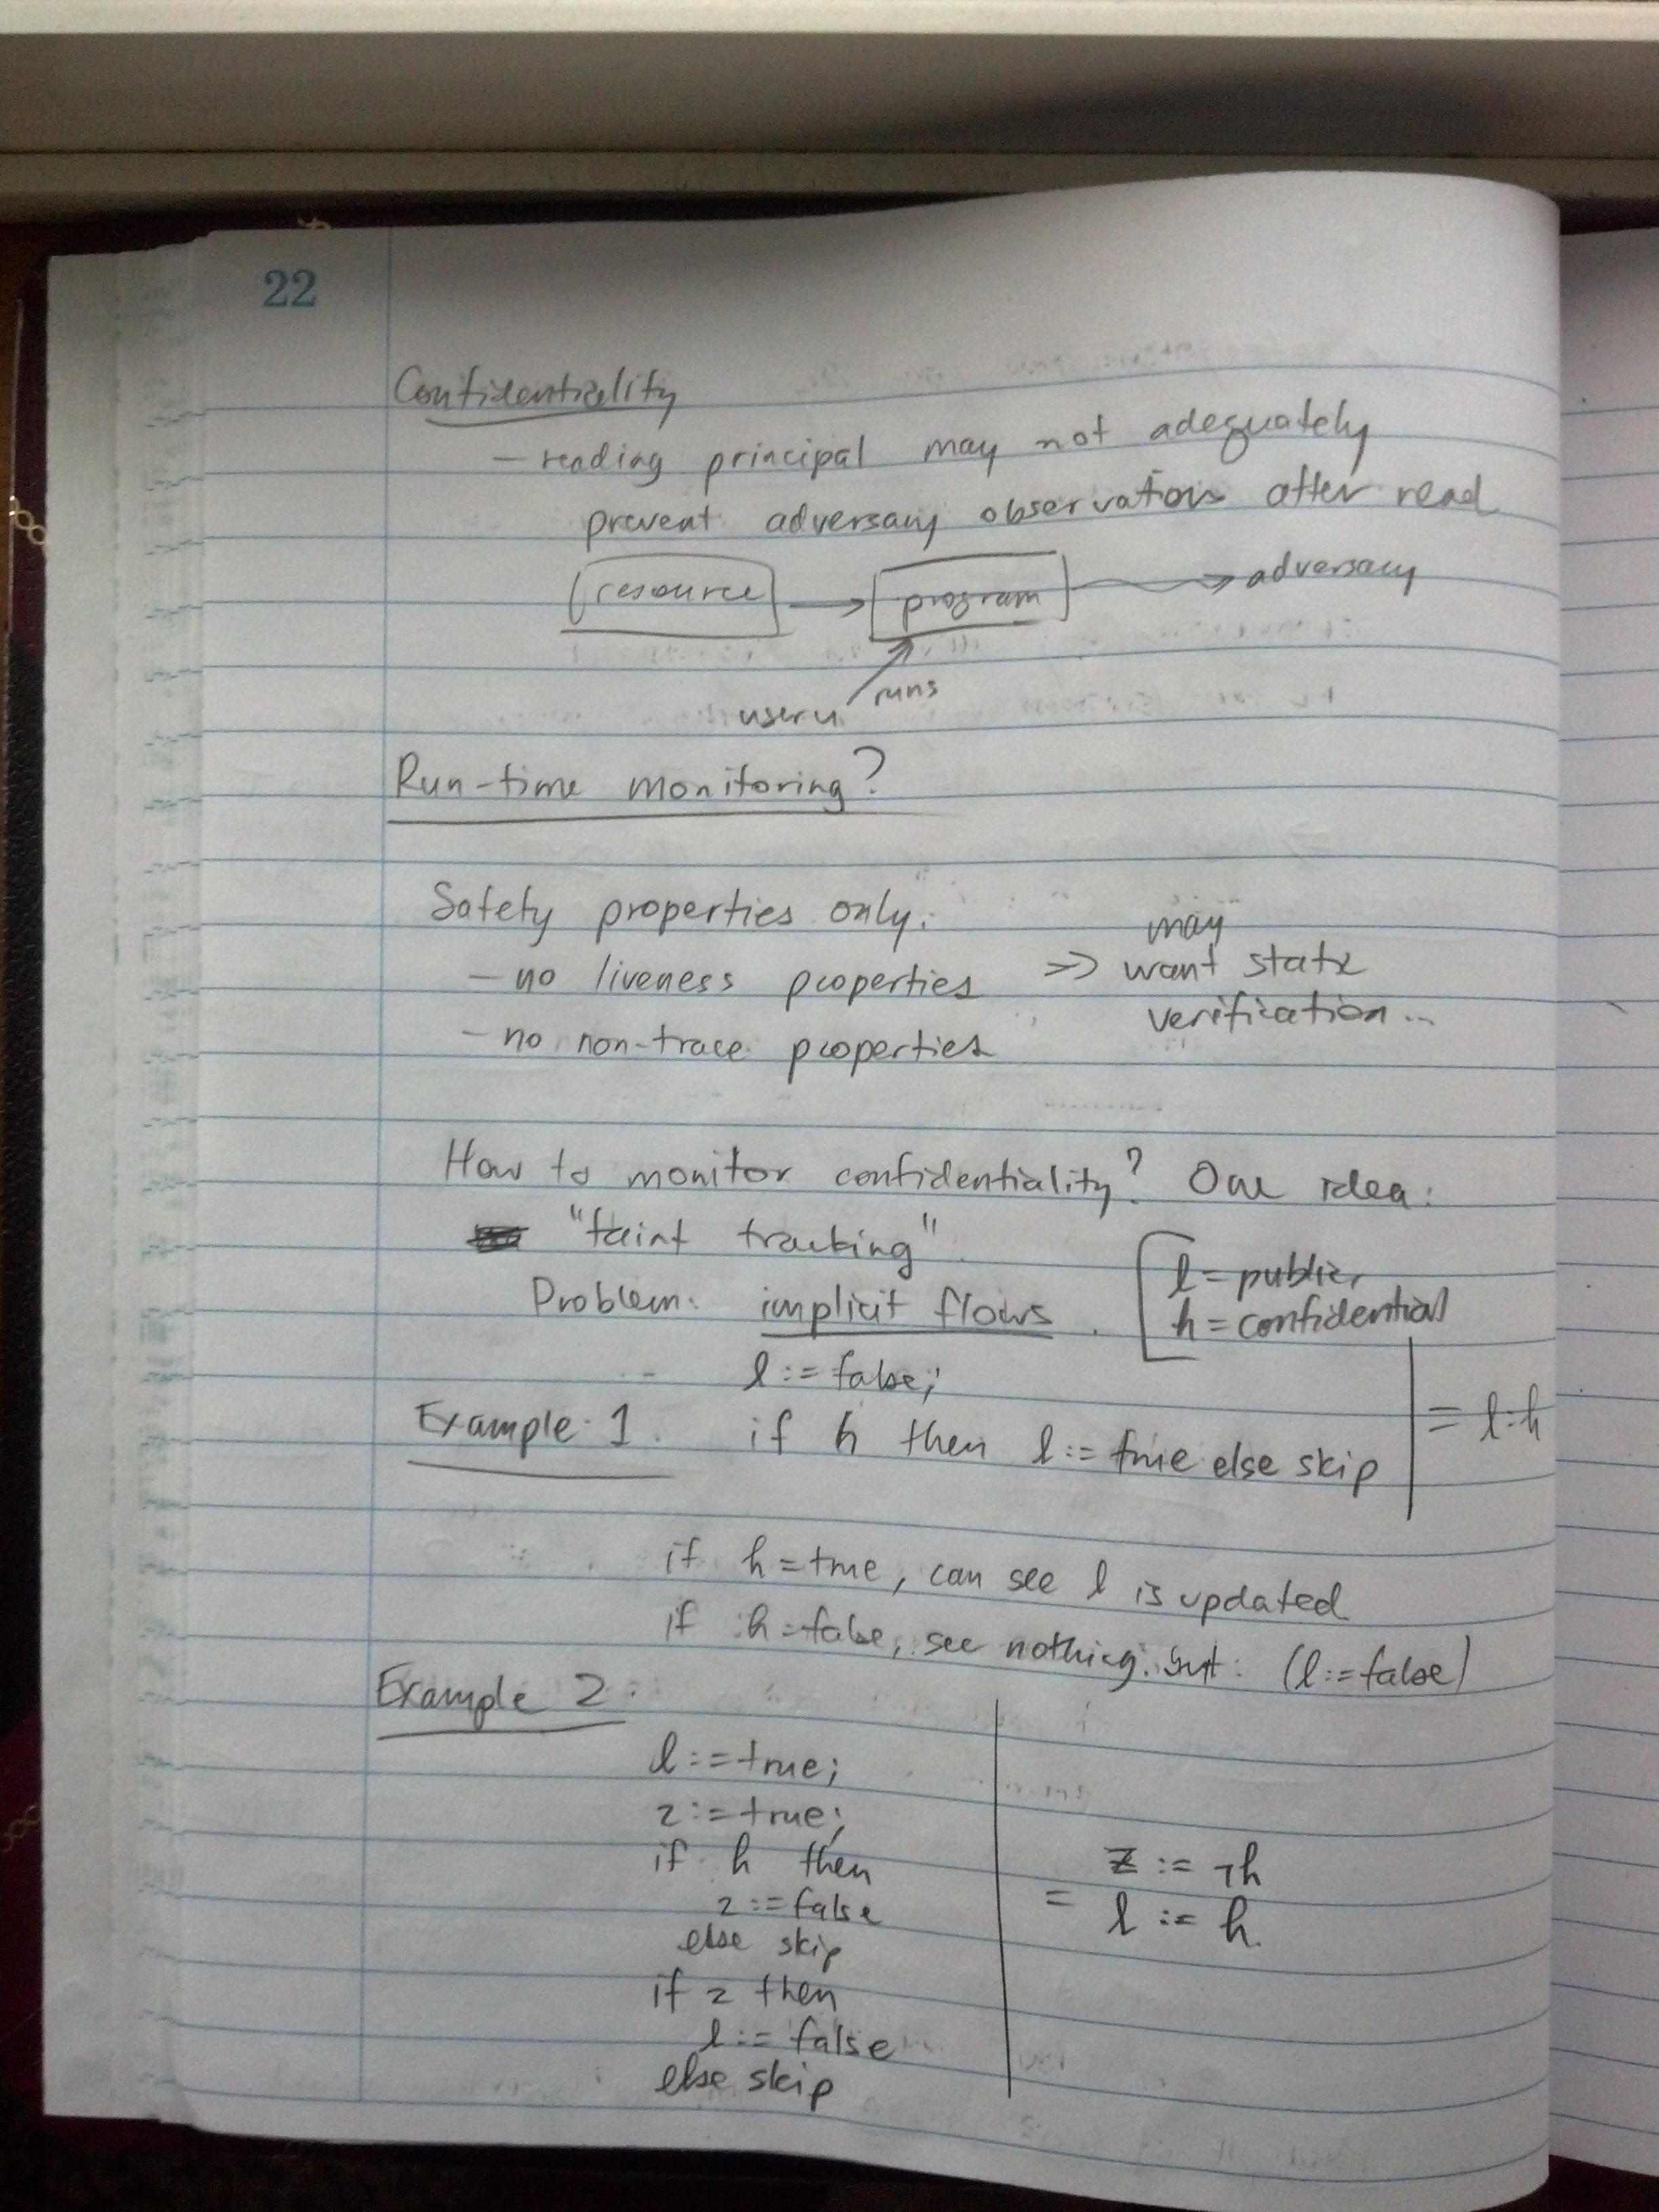 22
Confidentiality
— reading principal may not adequately
prevent adversary observations after read
resource → program → adversary
user u runs
Run-time monitoring?
Safety properties only:
— no liveness properties ⇒ may want static verification...
— no non-trace properties
How to monitor confidentiality? One idea:
"taint tracking"
Problem: implicit flows.
l = public,
h = confidential
l := false;
Example 1. if h then l := true else skip
= l:=h
if h = true, can see l is updated
if h = false, see nothing. but: (l := false)
Example 2.
l := true;
z := true;
if h then
z := false
else skip
if z then
l := false
else skip
= z := ¬h
l := h.